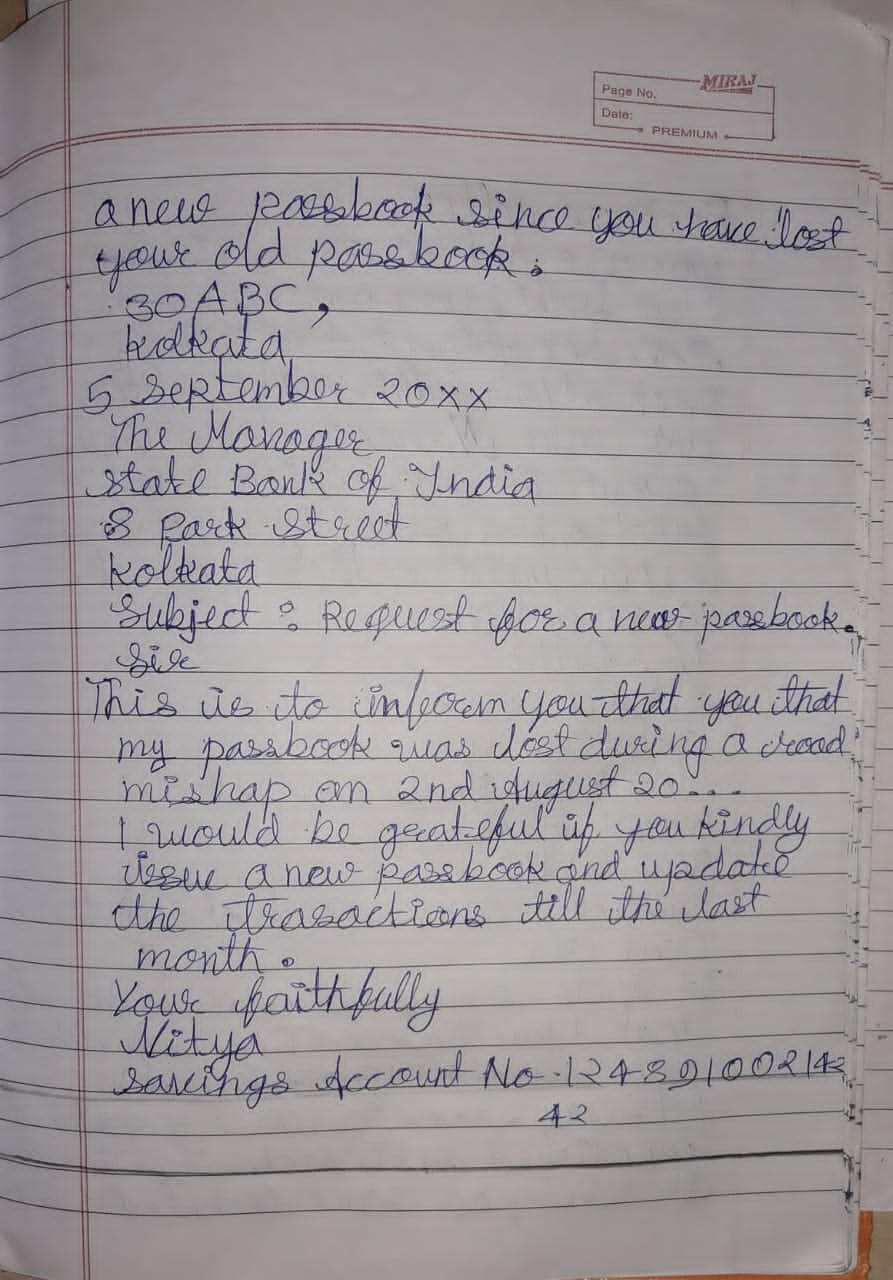 MIRAJ
Page No.
Date:
PREMIUM
a new passbook since you have lost
your old passbook.
30 ABC,
kolkata
5 September 20xx
The Manager
state Bank of India
8 Park Street
kolkata
Subject : Request for a new passbook.
Sir
This is to inform you that you that
my passbook was lost during a road
mishap on 2nd August 20...
I would be grateful if you kindly
issue a new passbook and update
the trasactions till the last
month.
Your faithfully
Nitya
Savings Account No. 124891002142
42